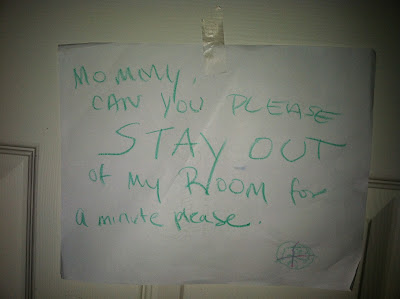 MOMMY,
CAN YOU PLEASE
STAY OUT
of MY ROOM for
a minute please.